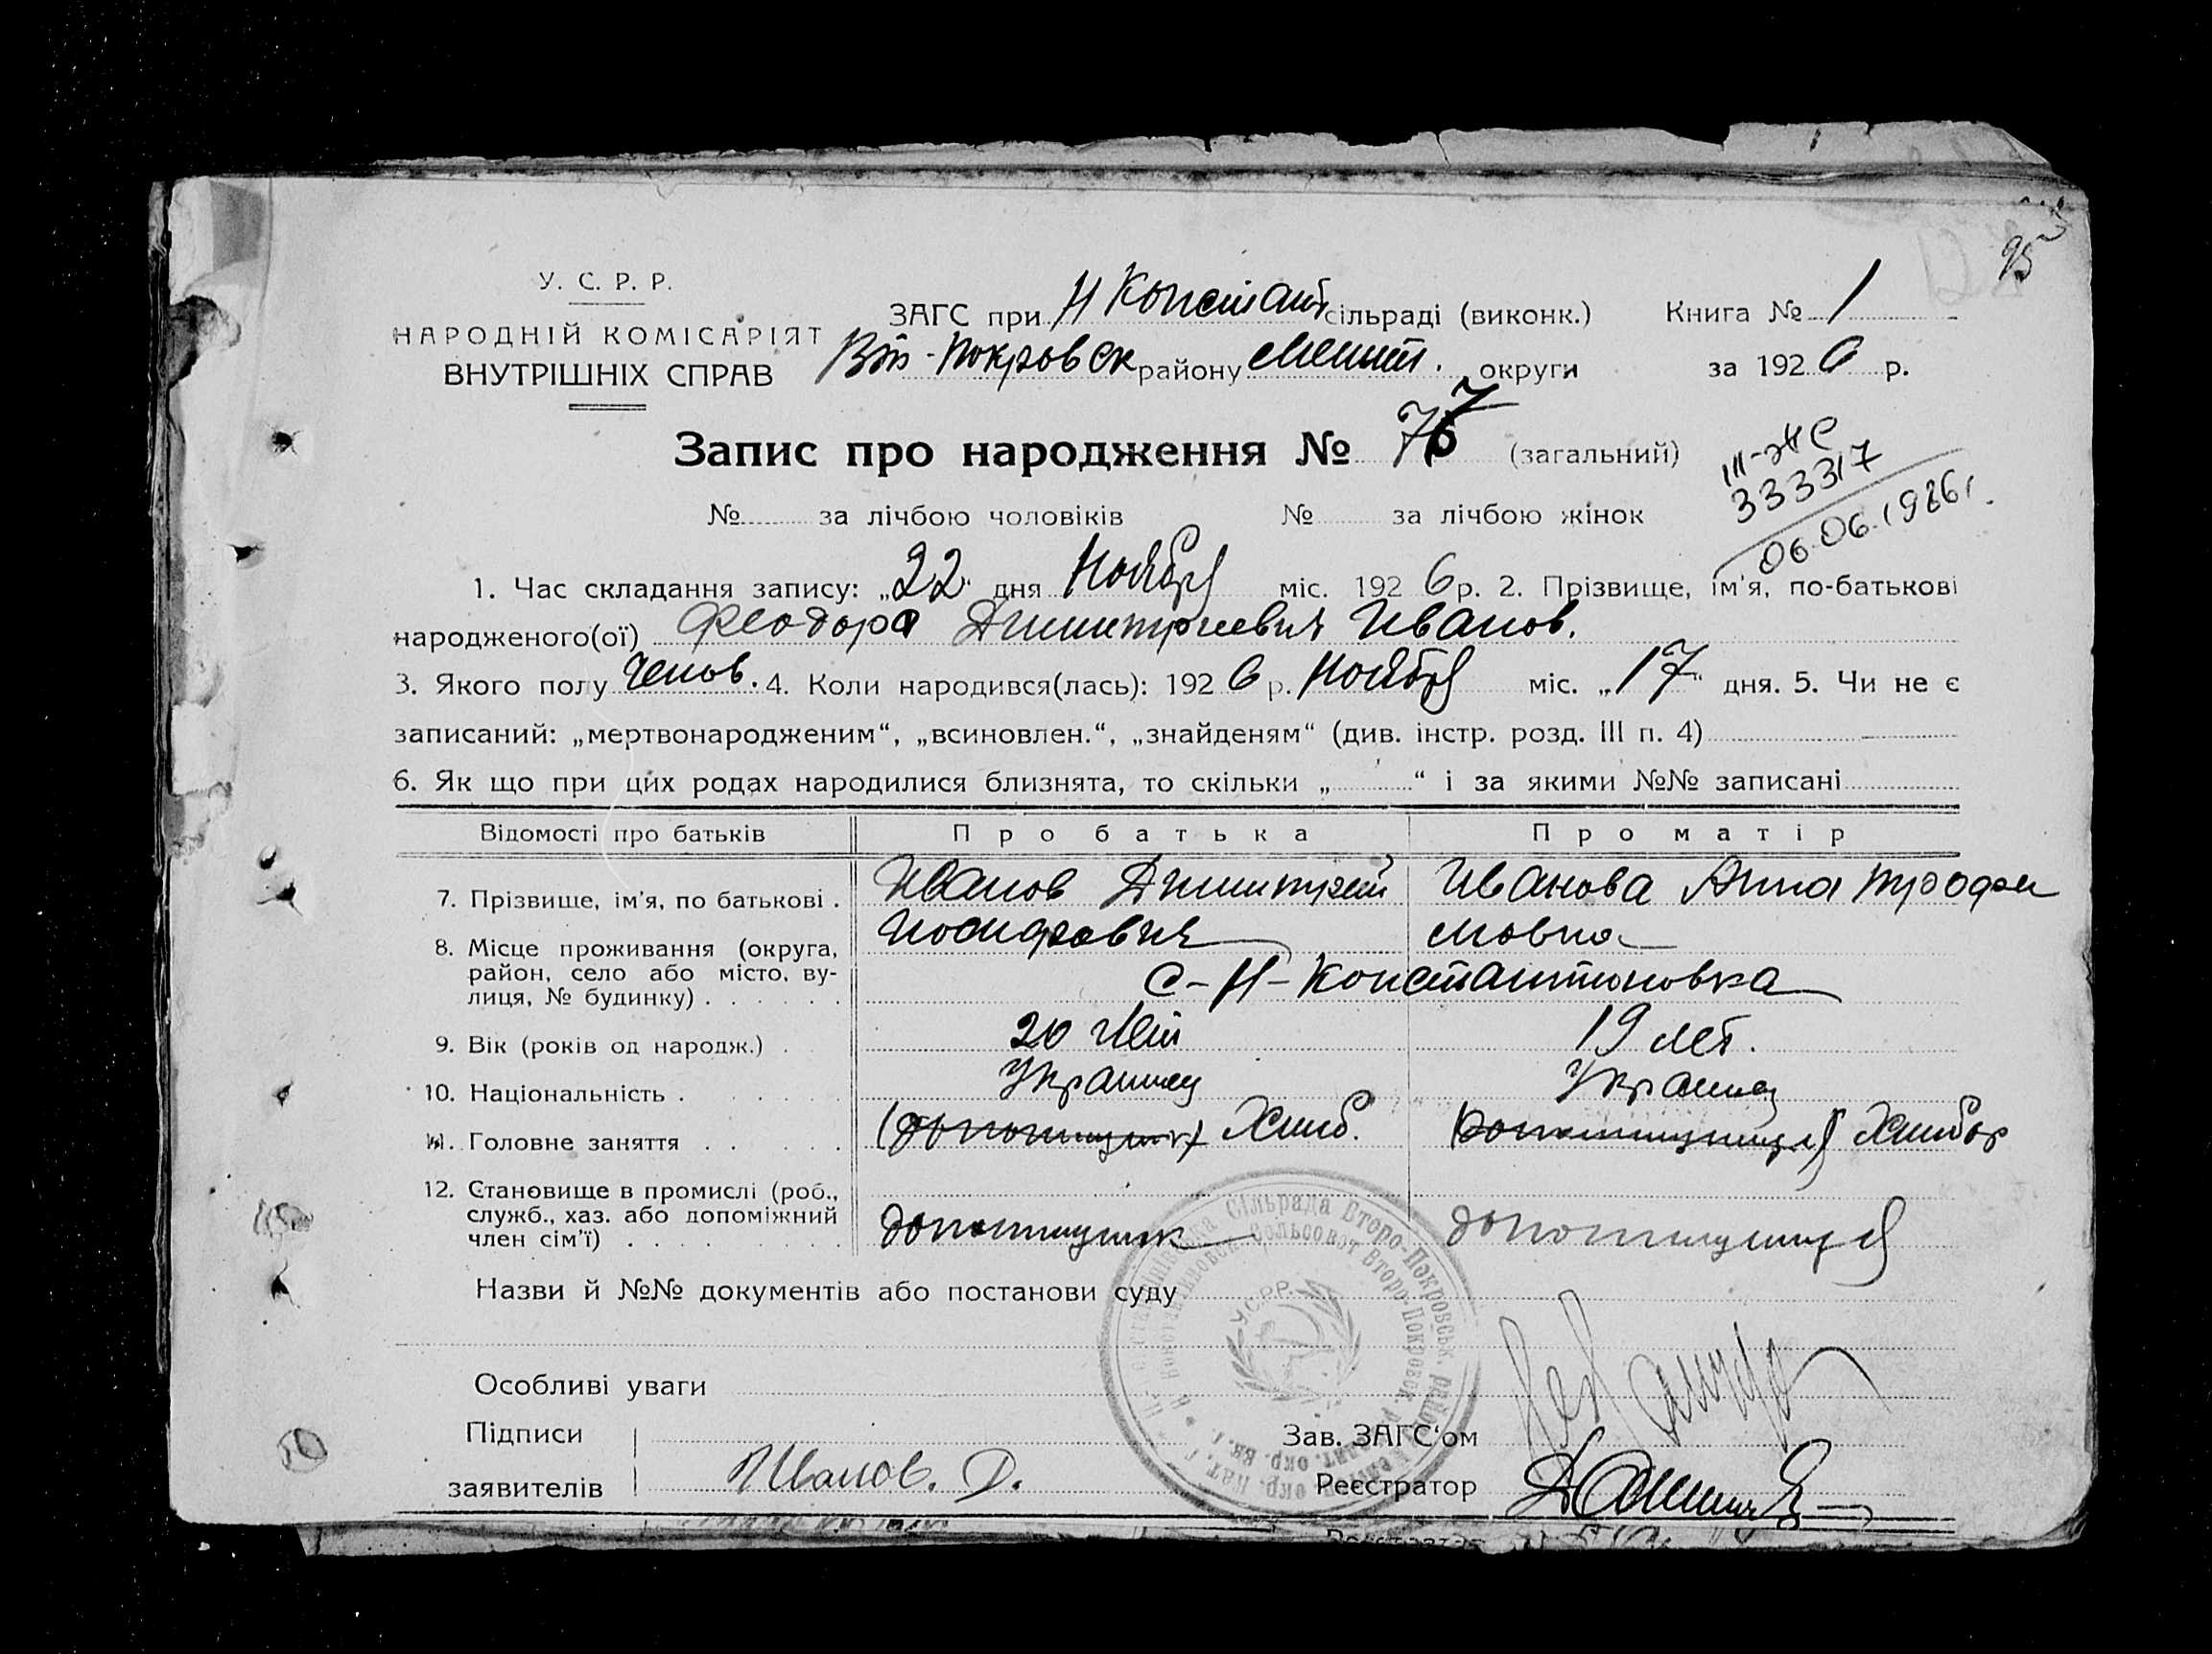 95
У. С. Р. Р.
НАРОДНІЙ КОМІСАРІЯТ
ВНУТРІШНІХ СПРАВ
ЗАГС при Н Констант сільраді (виконк.) Книга № 1
Вт-Покровск району Мелит. округи за 1926 р.
Запис про народження № 77 (загальний)
III-ЖС
333317
06.06.1986г.
№ за лічбою чоловіків № за лічбою жінок
1. Час складання запису: „22“ дня Ноября міс. 1926 р. 2. Прізвище, ім'я, по-батькові
народженого(ої) Феодора Димитриевич Иванов.
3. Якого полу челов. 4. Коли народився(лась): 1926 р. Ноября міс. „17“ дня. 5. Чи не є
записаний: „мертвонародженим“, „всиновлен.“, „знайденям“ (див. інстр. розд. III п. 4)
6. Як що при цих родах народилися близнята, то скільки „ “ і за якими №№ записані
Відомості про батьків Про батька Про матір
7. Прізвище, ім'я, по батькові . Иванов Димитрий Иосифович Иванова Анна Трофимовна
8. Місце проживання (округа,
район, село або місто, вулиця, № будинку) . . . . . . С-Н-Константиновка
9. Вік (років од народж.) . 20 лет 19 лет.
10. Національність . Украинец Украинец
11. Головне заняття . . Хлиб. Хлибор
12. Становище в промислі (роб.,
служб., хаз. або допоміжний
член сім'ї) . . . . . . допомищник допомищница
Назви й №№ документів або постанови суду
Сільрада Второ-Покровськ. район
Сольсовет Второ-Покровск.
У.С.Р.Р.
Особливі уваги
Підписи Зав. ЗАГС'ом
заявителів Иванов. Д. Реєстратор